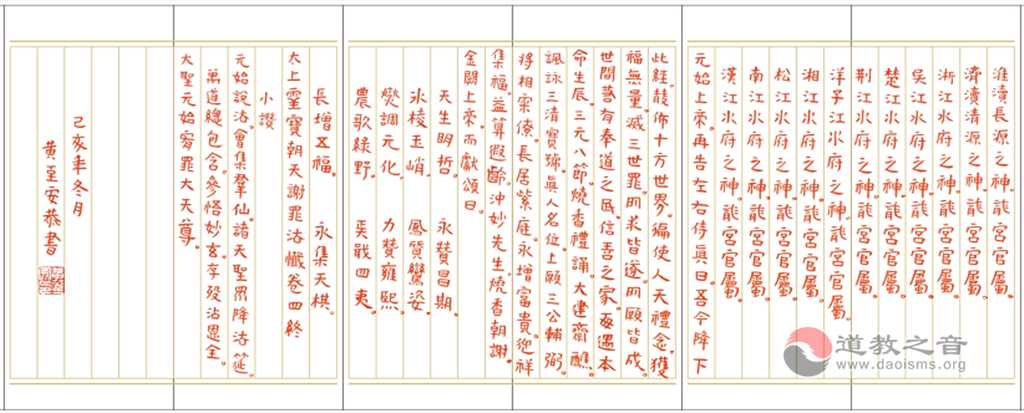 淮瀆長源之神。龍宮官屬。
濟瀆清源之神。龍宮官屬。
浙江水府之神。龍宮官屬。
吳江水府之神。龍宮官屬。
楚江水府之神。龍宮官屬。
荆江水府之神。龍宮官屬。
洋子江水府之神。龍宮官屬。
湘江水府之神。龍宮官屬。
松江水府之神。龍宮官屬。
南江水府之神。龍宮官屬。
漢江水府之神。龍宮官屬。
元始上帝。再告左右侍真曰。吾今降下
此經。散佈十方世界。徧使人天禮念。獲
福無量。滅三世罪。所求皆遂。所願皆成。
世間善有奉道之民。信吾之家。每遇本
命生辰。三元八節。燒香禮誦。大建齋醮。
諷詠三清寶號。眞人名位。上願三公輔弼。
將相寀僚。長居紫庭。永增富貴。迎祥
集福。益算遐齡。沖妙先生。燒香朝謝。
金闕上帝。而獻頌曰。
天生明哲。 永贊昌期。
氷稜玉峭。 鳳質鸞姿。
燮調元化。 力贊雍熙。
農歌綠野。 奠戢四夷。
長增五福。 永集天祺。
太上靈寶朝天謝罪法懺卷四終
小讚
元始說法。會集羣仙。諸天聖眾降法筵。
萬道總包含。參悟妙玄。存發沾恩全。
大聖元始宥罪大天尊。
己亥年冬月
黄至安恭書
道教之音
www.daoisms.org